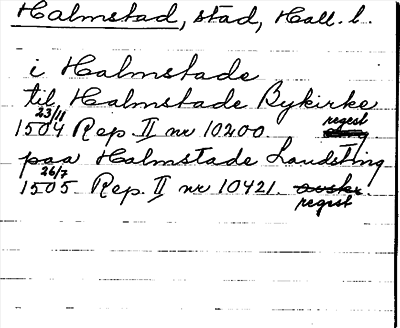 Halmstad, stad, Hall. l.
i Halmstade
til Halmstade Bykirke
23/11 1504 Rep. II nr 10200. regest
paa Halmstade Landsting
26/7 1505 Rep. II nr 10421. avskr. regest